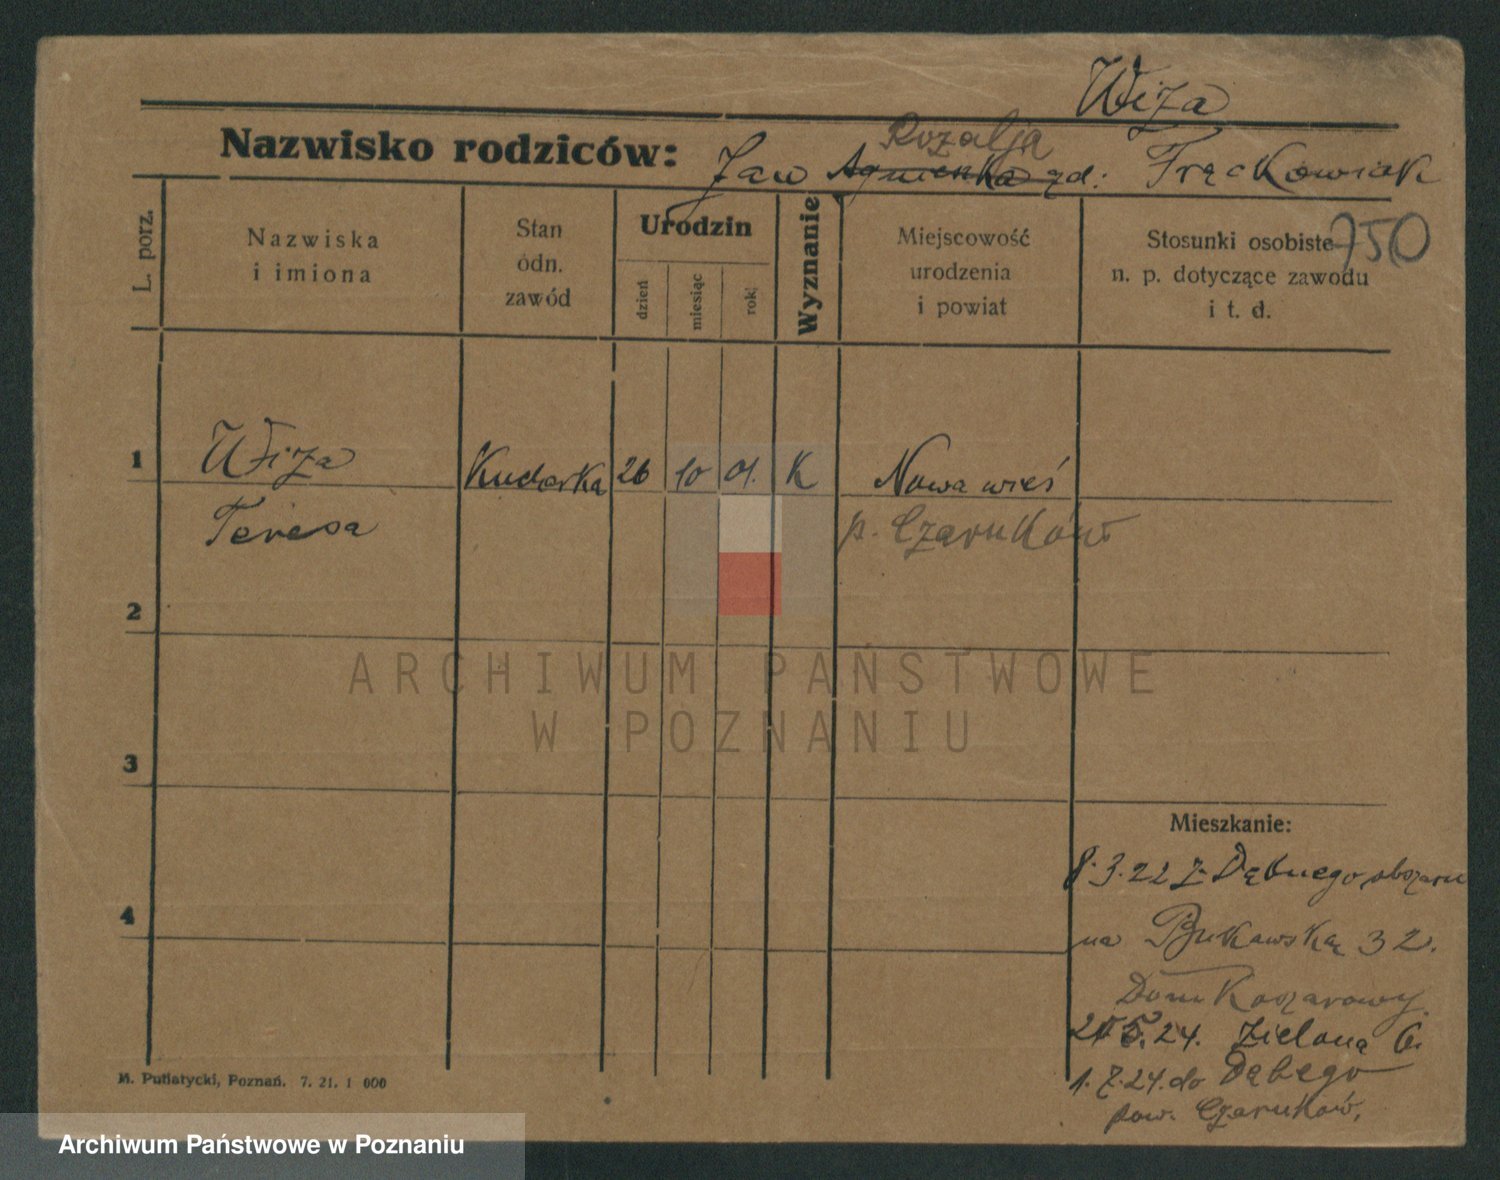 Wiza
Rozalja
Nazwisko rodziców: Jan Agnieszka zd: Frąckowiak
750
L. porz.
Nazwiska
i imiona
Stan
odn.
zawód
Urodzin
dzień
miesiąc
rok
Wyznanie
Miejscowość
urodzenia
i powiat
Stosunki osobiste
n. p. dotyczące zawodu
i t. d.
1 Wiza Kucharka 26 10 01. K Nowa wieś
Teresa p. Czarnków
2
3
4
Mieszkanie:
8.3.22 z Dębnego obszaru
na Bukowską 32.
Dom Koszarowy
5.24. Zielona 6.
1.7.24. do Dębego
pow. Czarnków.
M. Putiatycki, Poznań. 7. 21. 1 000
ARCHIWUM PAŃSTWOWE
W POZNANIU
Archiwum Państwowe w Poznaniu